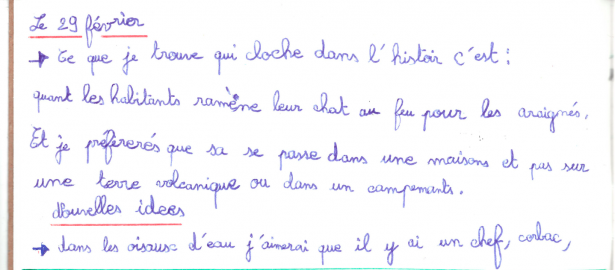 Le 29 février
→ Ce que je trouve qui cloche dans l'histoir c'est :
quant les habitants ramène leur chat au feu pour les araignés.
Et je préfererés que sa se passe dans une maisons et pas sur
une terre volcanique ou dans un campemants.
Nouvelles idees
→ dans les oisause d'eau j'aimerai que il y ai un chef, corbac,